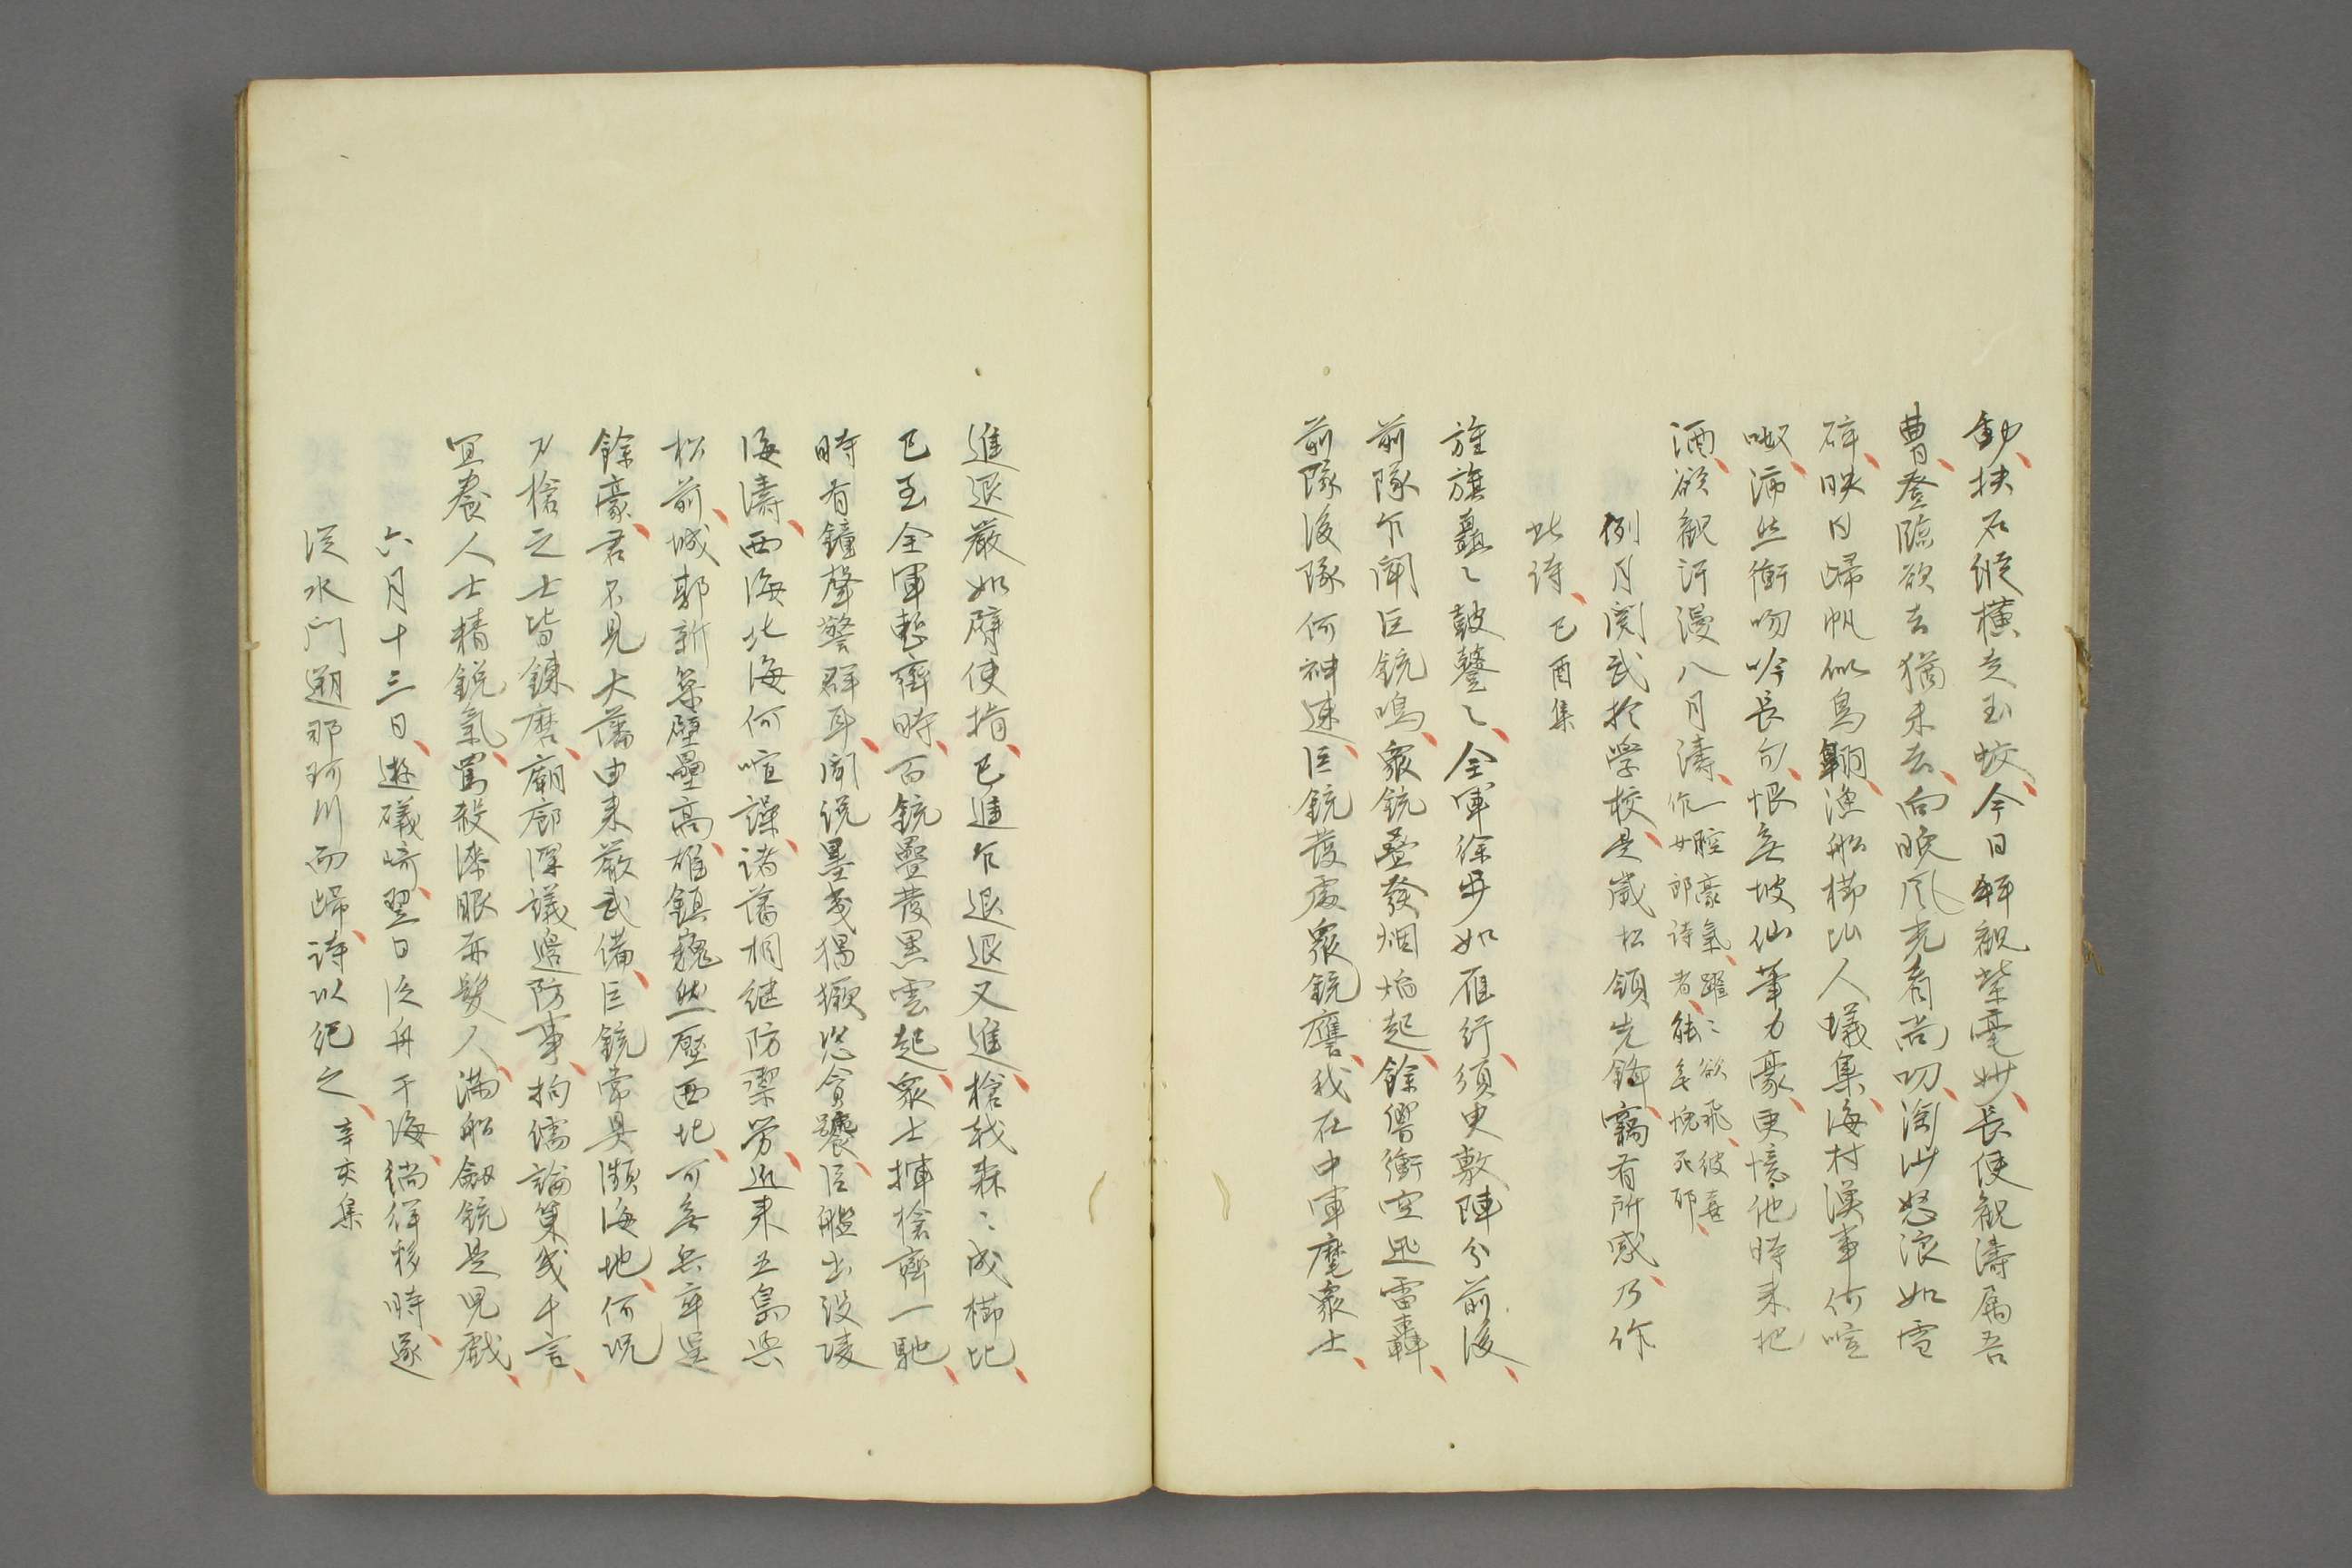 釛、扶石縱横走玉蛟、今日斡觀紫毫妙、長使觀濤屬吾
曹、登臨欲去猶未去、向晩風光看尚叨、淘沙怒浪如雪
碎、映日歸帆似鳥翺、漁船櫛比人蟻集、海村漢事何喧
呶、㴞然衡吻吟長句、恨無坡仙筆力豪、更憶他時来把
酒、欲觀汗漫八月濤、一腔豪氣、躍〻欲飛、彼喜
作女郎詩者、能無愧死耶、
例月閲武於学校、是歳松領先鋒、竊有所感、乃作
此詩、己酉集
旌旗矗〻鼓鼕〻、全軍徐步如雁行、須臾敷陣分前後、
前隊乍聞巨銃鳴、衆銃疊發烟焔起、餘響衝空迅雷轟、
前隊後隊何神速、巨銃發處衆銃應、我在中軍麾衆士、
進退嚴如臂使指、已進乍退退又進、槍戟森〻成櫛比、
已至全軍整齊時、百銃疊發黒雲起、衆士揮槍齊一馳、
時有鐘聲警群耳、聞説墨夷猖獗恣貪饕、巨艦出没凌
海濤、西海北海何喧譟、諸藩相継防禦労、近来五島與
松前、城郭新築壁壘高、雄鎮巍然壓西北、可無兵卒逞
餘豪、君不見大藩由来嚴武備、巨銃常具瀕海地、何況
刀槍之士皆錬磨、廟廊深議邊防事、拘儒論策幾千言、
宜養人士精鋭氣、罵殺漆眼赤髮人、満船劔銃是兒戲、
六月十三日、遊礒﨑、翌日泛舟于海、徜徉移時、遂
從水門遡那珂川而歸、詩以紀之、辛亥集